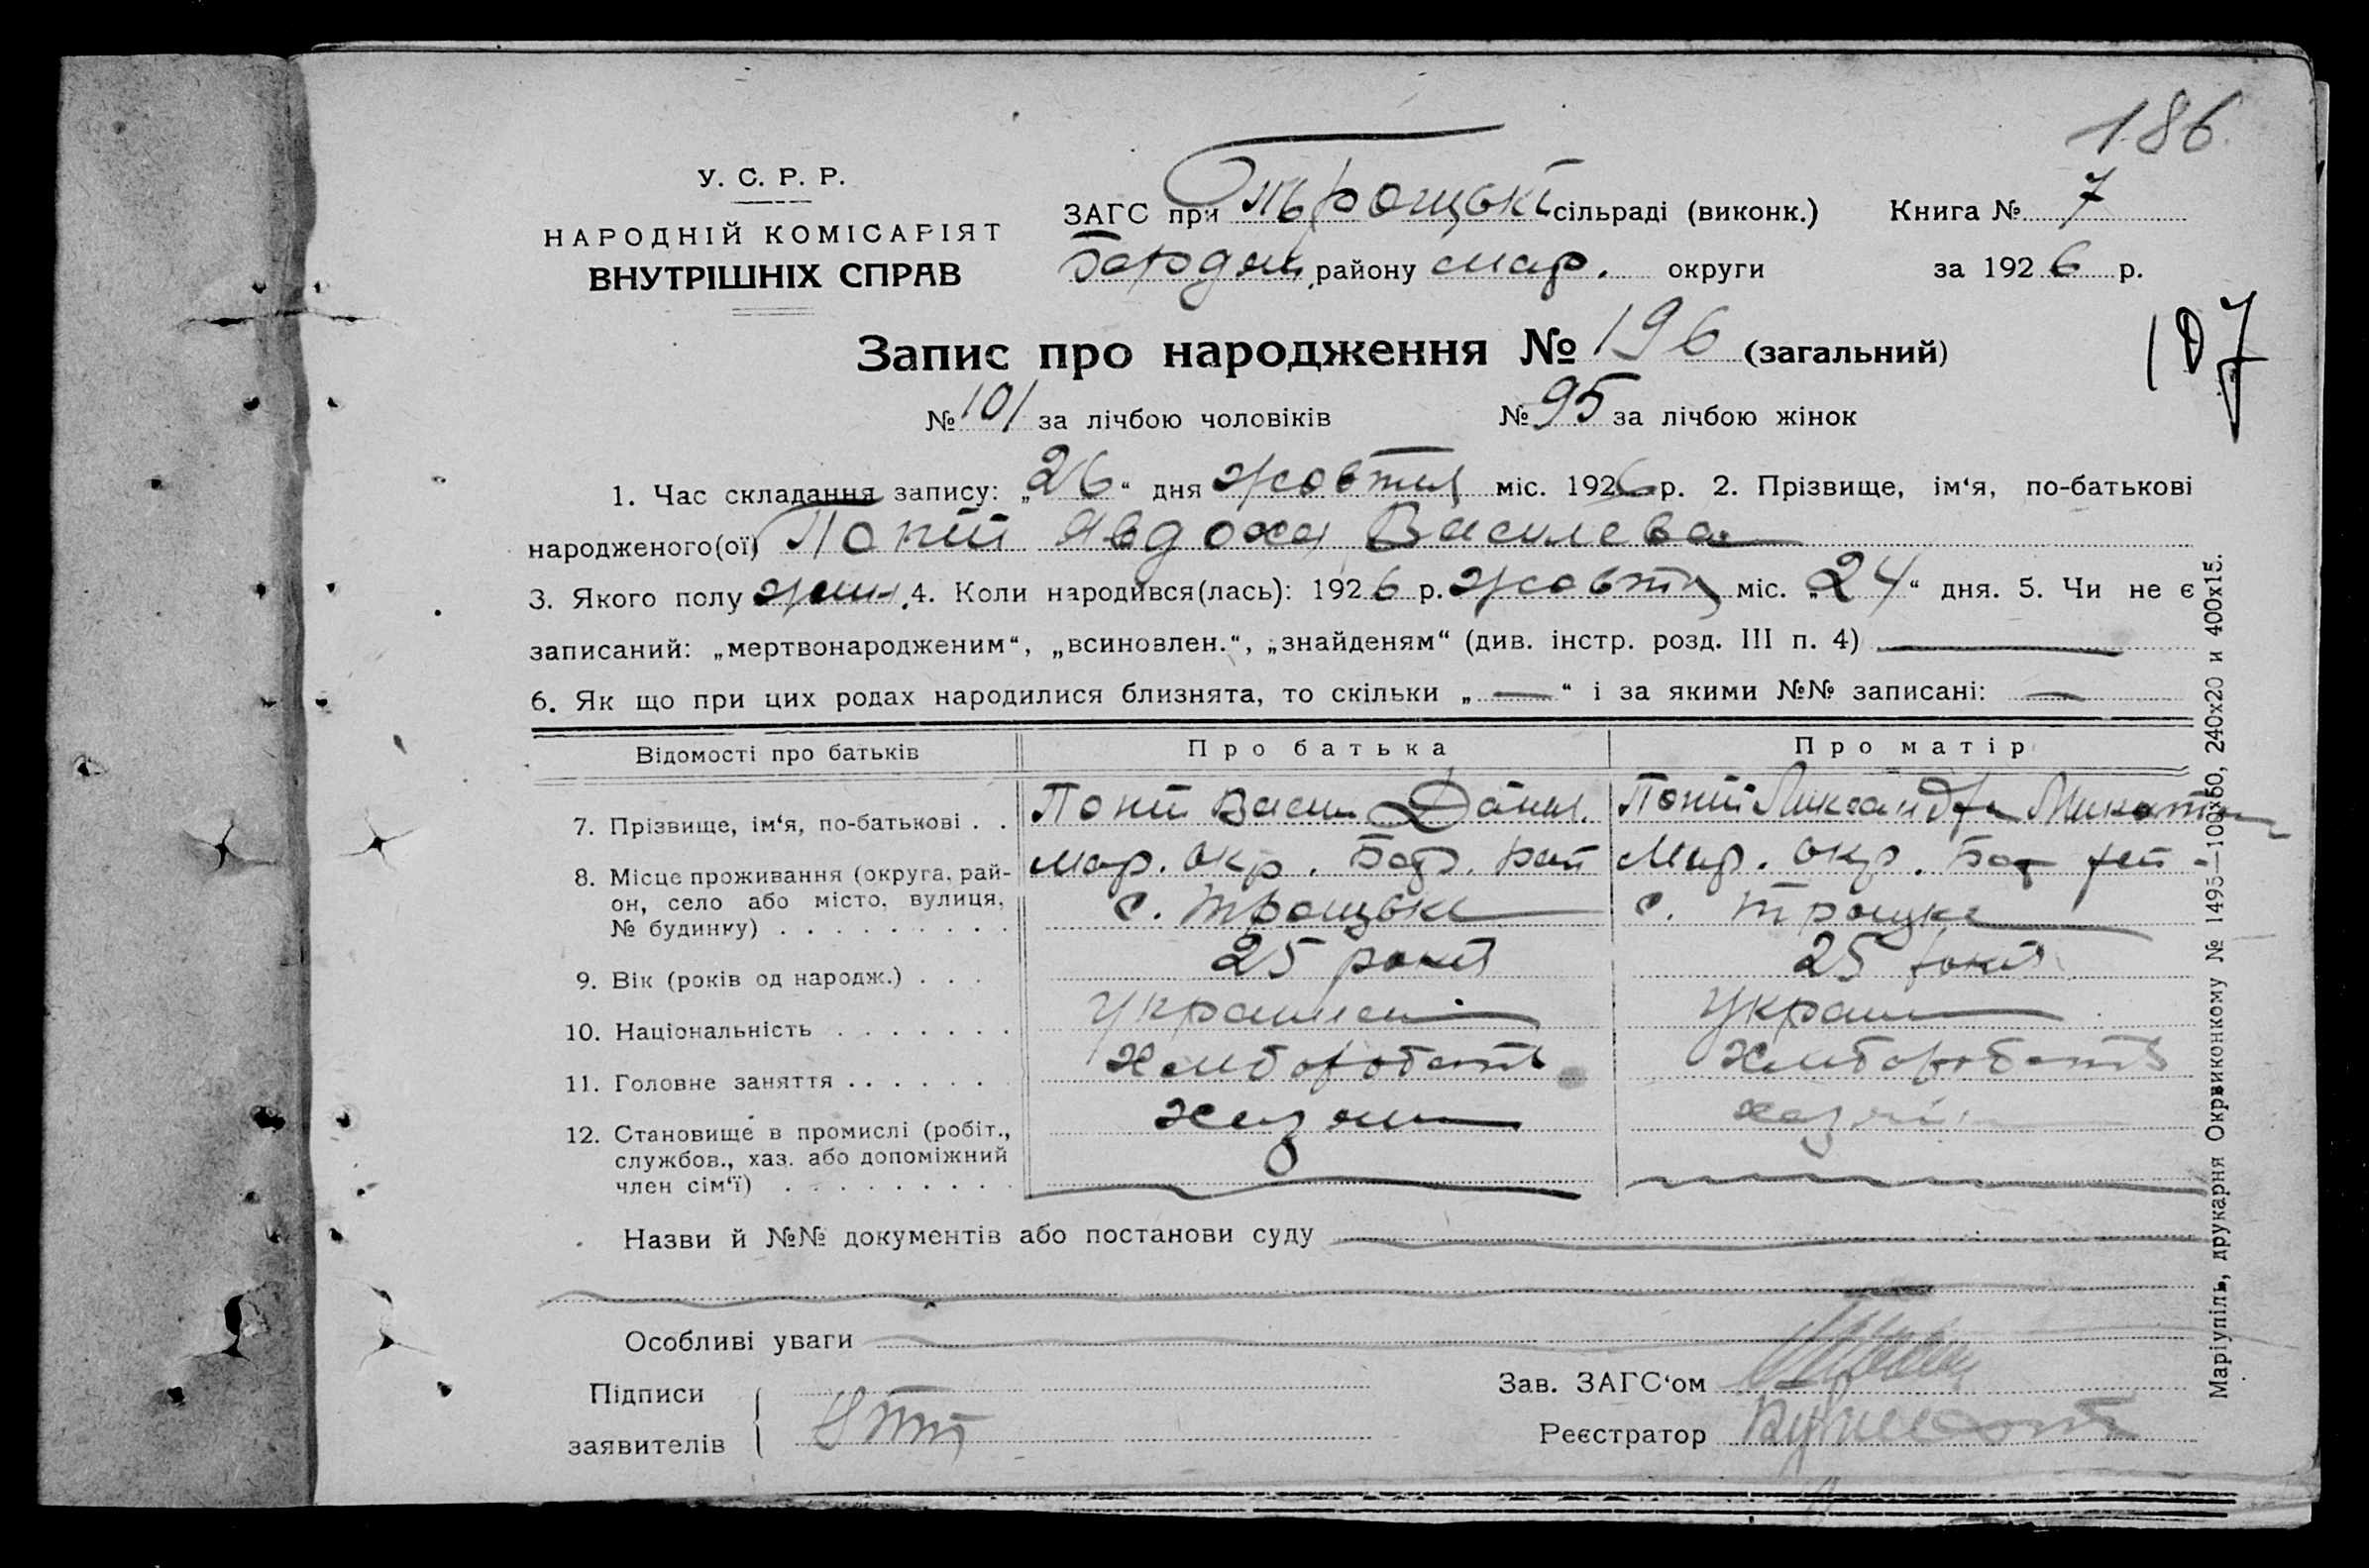 186.
У. С. Р. Р.
НАРОДНІЙ КОМІСАРІЯТ
ВНУТРІШНІХ СПРАВ
ЗАГС при Троцькі сільраді (виконк.) Книга № 7
району Мар. округи за 1926 р.
Запис про народження № 196 (загальний)
107
№ 101 за лічбою чоловіків № 95 за лічбою жінок
1. Час складання запису: „26“ дня жовтня міс. 1926 р. 2. Прізвище, ім‘я, по-батькові
народженого(ої) Явдоха Василева
3. Якого полу жин. 4. Коли народився(лась): 1926 р. жовтня міс. „24“ дня. 5. Чи не є
записаний: „мертвонародженим“, „всиновлен.“, „знайденям“ (див. інстр. розд. III п. 4) —
6. Як що при цих родах народилися близнята, то скільки „—“ і за якими №№ записані: —
Відомості про батьків Про батька Про матір
7. Прізвище, ім‘я, по-батькові . . Васил Данил.
8. Місце проживання (округа, рай-
он, село або місто, вулиця,
№ будинку) . . . . . . . . . Мар. окр. Бер. рай Мар. окр. Бер рай
с. Троцьке с. Троцке
9. Вік (років од народж.) . . . 25 років 25 років
10. Національність . . . . . . . Украинец Украин
11. Головне заняття . . . . . . Хлиборобств Хлиборобств
12. Становище в промислі (робіт.,
службов., хаз. або допоміжний
член сім‘ї) . . . . . . . . . хазяин хазяин
Назви й №№ документів або постанови суду
Особливі уваги
Підписи
заявителів
Зав. ЗАГС‘ом
Реєстратор
Маріупіль, друкарня Окрвиконкому № 1495—100х50, 240х20 и 400х15.